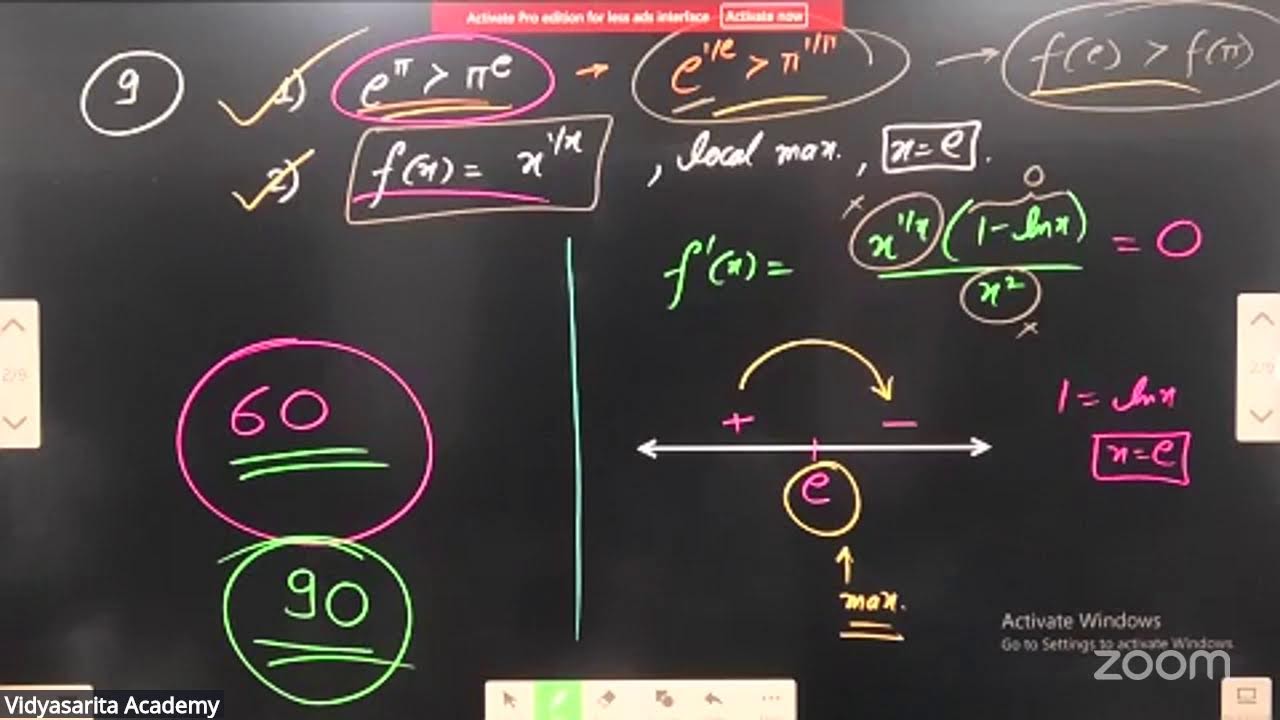 Activate Pro edition for less ads interface Activate now
9 1) e^π > π^e → e^{1/e} > π^{1/π} → f(e) > f(π)
2) f(x) = x^{1/x} , local max. , x = e .
0
f'(x) = x^{1/x} (1 - ln x) / x² = 0
60
+ −
1 = ln x
2/9
2/9
x = e
e
90
max.
Activate Windows
Go to Settings to activate Windows
zoom
Vidyasarita Academy